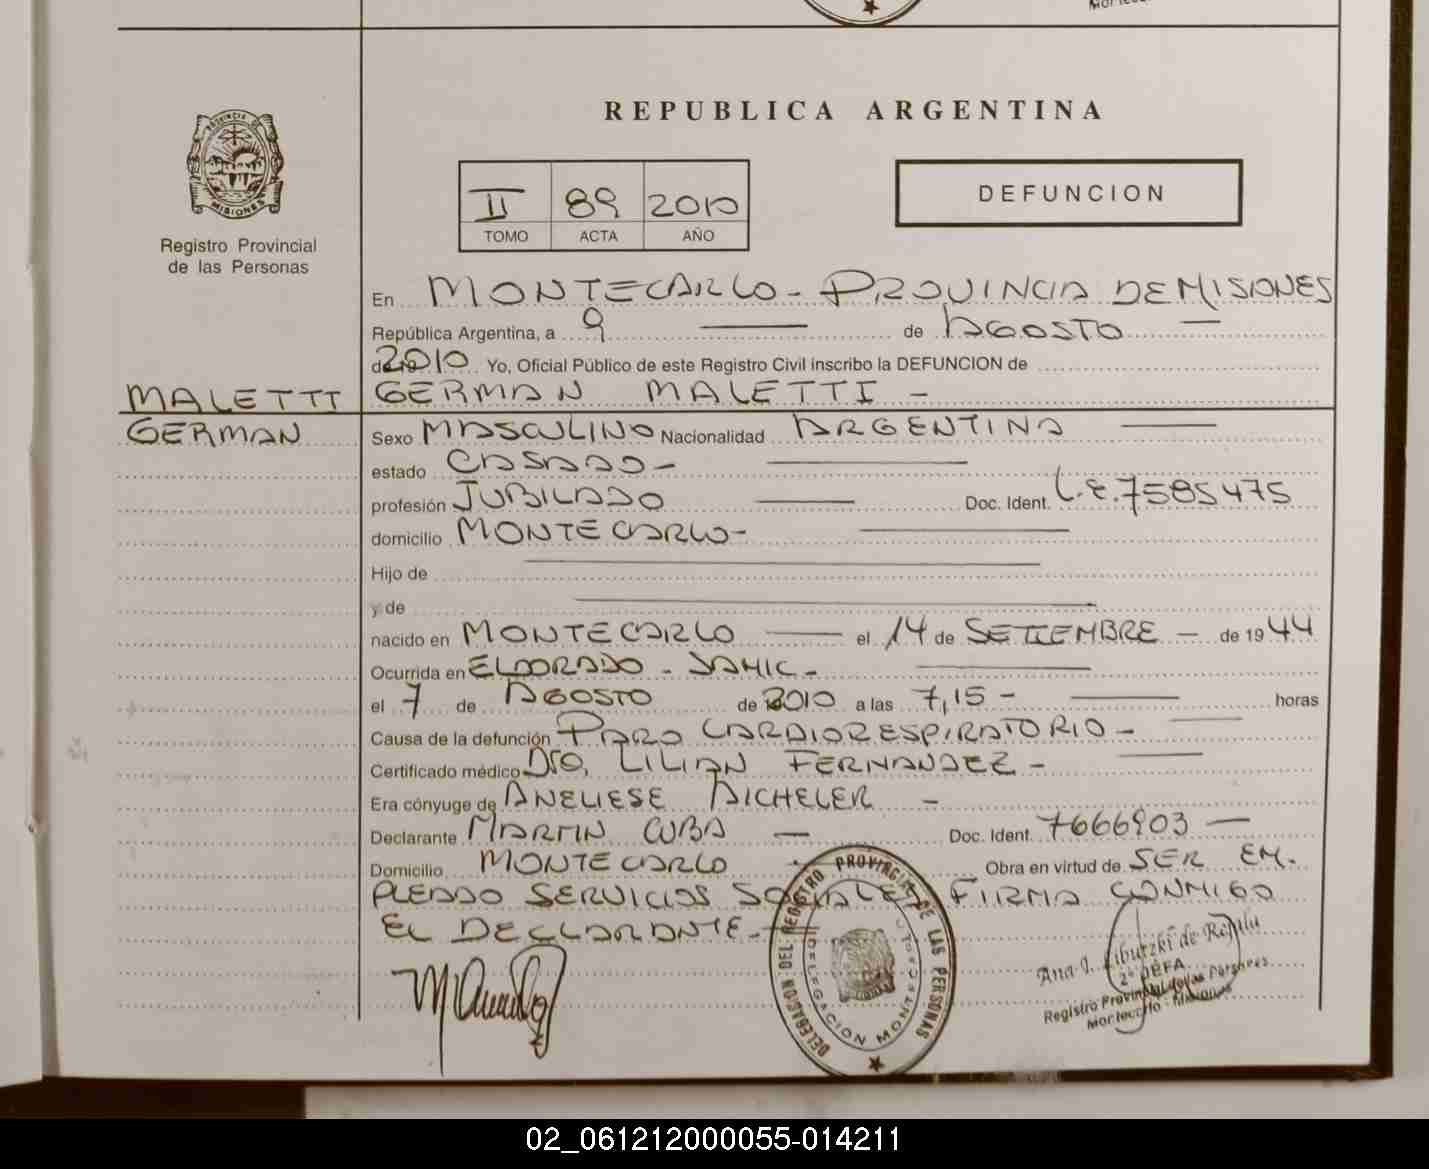 REPUBLICA ARGENTINA
PROVINCIA DE
MISIONES
Registro Provincial
de las Personas
II 89 2010
TOMO ACTA AÑO
DEFUNCION
En MONTECARLO - PROVINCIA DE MISIONES
República Argentina, a 9 — de AGOSTO —
de 2010 Yo, Oficial Público de este Registro Civil inscribo la DEFUNCION de
MALETTI
GERMAN MALETTI -
GERMAN
Sexo MASCULINO Nacionalidad ARGENTINA —
estado CASADO - —
profesión JUBILADO — Doc. Ident. L.E. 7585475
domicilio MONTECARLO - —
Hijo de —
y de —
nacido en MONTECARLO — el 14 de SETIEMBRE - de 1944
Ocurrida en ELDORADO - SAMIC - —
el 7 de AGOSTO de 2010 a las 7,15 - — horas
Causa de la defunción PARO CARDIORESPIRATORIO - —
Certificado médico Dra. LILIAN FERNANDEZ - —
Era cónyuge de ANELIESE AICHELER -
Declarante MARTIN CUBA — Doc. Ident. 7666903 —
Domicilio MONTECARLO - Obra en virtud de SER EM-
PLEADO SERVICIOS SOCIALES FIRMA CONMIGO
EL DECLARANTE.-
DELEGACION DEL REGISTRO PROVINCIAL DE LAS PERSONAS
DELEGACION MONTECARLO
Ana I. de
2º DEFA
Registro Provincial de las Personas
Montecarlo - Misiones
02_061212000055-014211